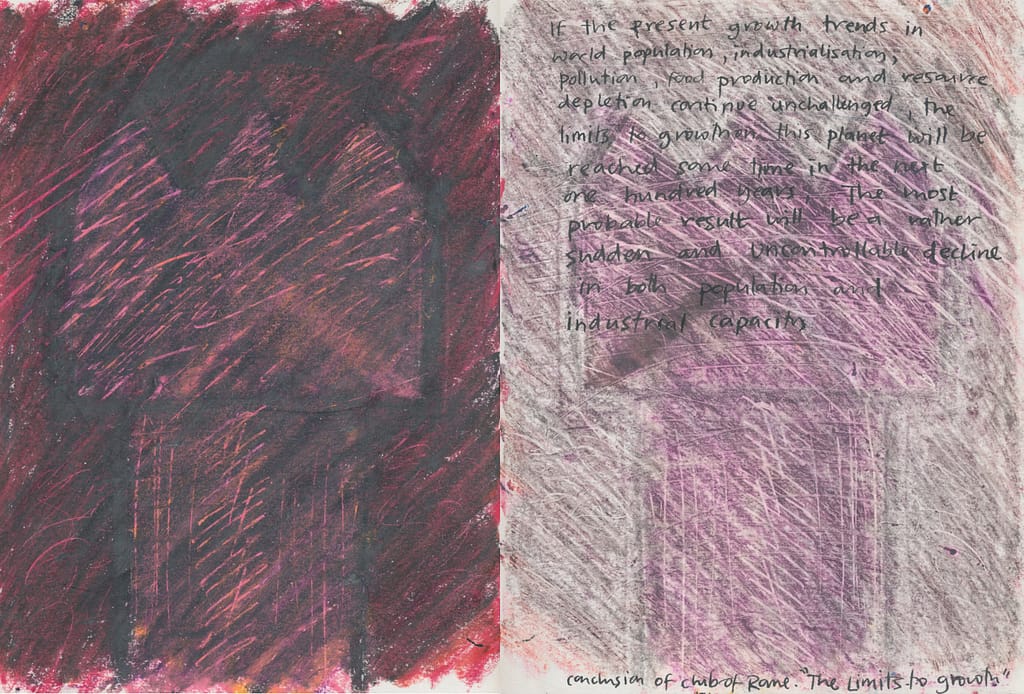 If the present growth trends in
world population, industrialisation,
pollution, food production and resource
depletion continue unchallenged, the
limits to growth on this planet will be
reached some time in the next
one hundred years. The most
probable result will be a rather
sudden and uncontrollable decline
in both population and
industrial capacity
conclusion of club of Rome. "The Limits to growth"